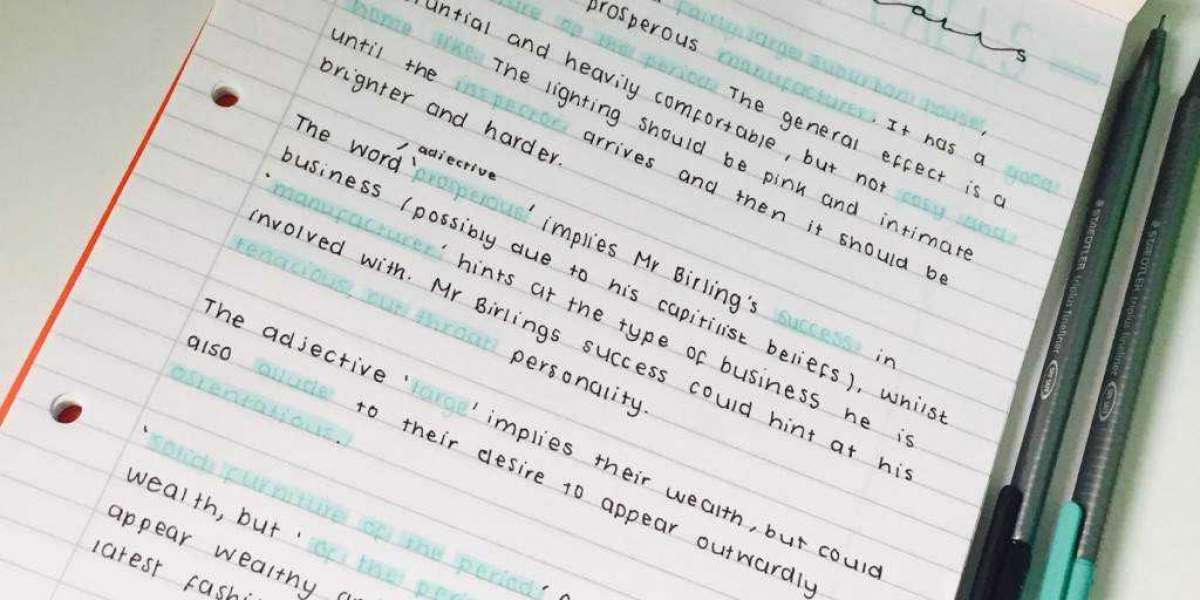 calls
fairly large suburban house,
sire of the period prosperous manufacturer. It has a good
home like. The general effect is a
and heavily comfortable, but not cosy and
The lighting should be pink and intimate
until the inspector arrives and then it should be
brighter and harder.
adjective
The word 'prosperous' implies Mr Birling's success in
business (possibly due to his capitilist beliefs), whilst
'manufacturer' hints at the type of business he is
involved with. Mr Birlings success could hint at his
tenacious, cut throat personality.
The adjective 'large' implies their wealth, but could
also allude to their desire to appear outwardly
ostentatious.
'solid furniture of the period'
wealth, but 'of the peri
appear wealthy an
latest fashi
STAEDTLER triplus fineliner
STAEDTLER triplus fineliner